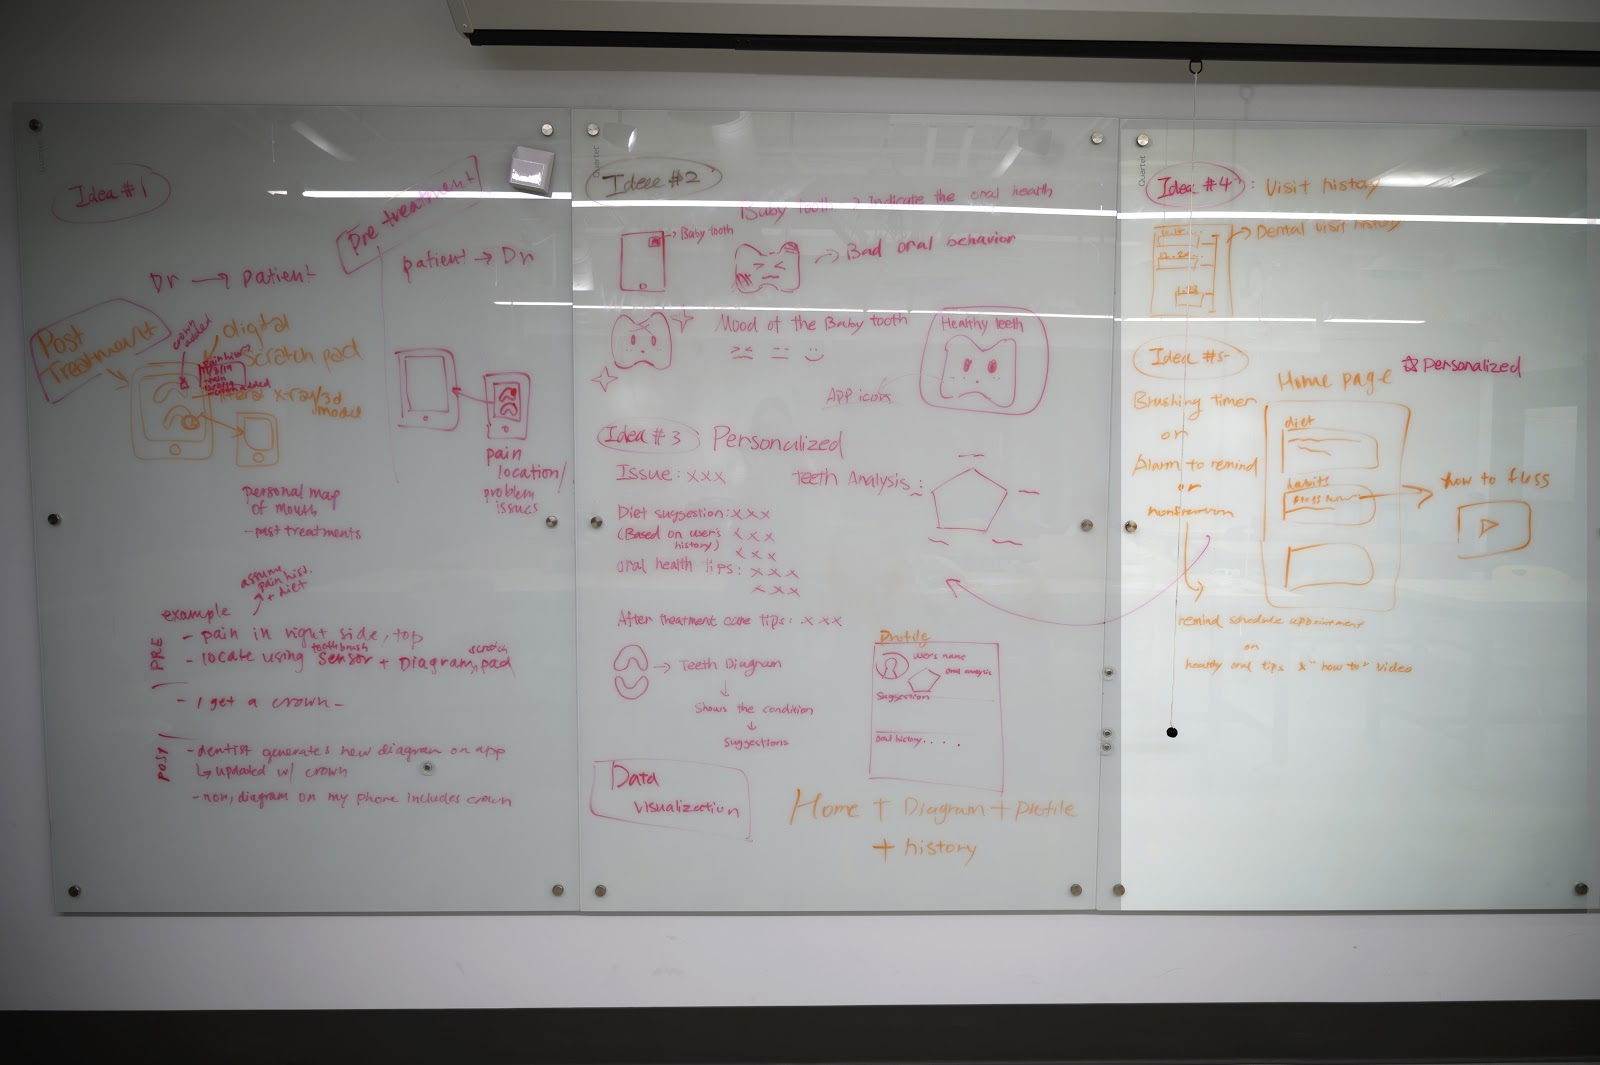 Idea #1
Pre treatment
Dr → patient
patient → Dr
Post
Treatment
crown
added
digital
scratch pad
x-ray/3d
model
pain
location/
problem
issues
personal map
of mouth
- past treatments
assume
pain hist.
+ diet
example
PRE
- pain in right side, top
toothbrush
scratch
- locate using sensor + Diagram, pad
- I get a crown -
POST
- dentist generates new diagram on app
↳ updated w/ crown
- now, diagram on my phone includes crown
Quartet
Idea #2
Baby tooth → Indicate the oral health
→ Baby tooth
→ Bad oral behavior
Mood of the Baby tooth
Healthy teeth
APP icon
Idea #3 Personalized
Issue: xxx
Teeth Analysis:
Diet suggestion: xxx
(Based on user's xxx
history) xxx
oral health tips: xxx
xxx
After treatment care tips: xxx
→ Teeth Diagram
↓
Shows the condition
↓
Suggestions
Profile
user's name
oral analysis
Suggestion
oral history. . . .
Data
visualization
Home + Diagram + profile
+ history
Quartet
Idea #4: Visit history
→ Dental visit history
Idea #5
☆ personalized
Home page
Brushing timer
or
Alarm to remind
or
diet
habits
how to floss
remind schedule appointment
or
healthy oral tips & "how to" video